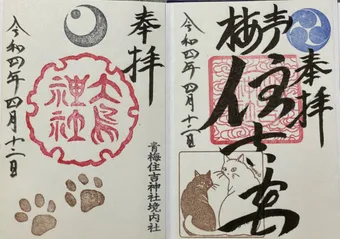 奉拝
青梅
住吉
令和四年四月十二日
奉拝
青梅住吉神社境内社
大鳥
神社
令和四年四月十二日